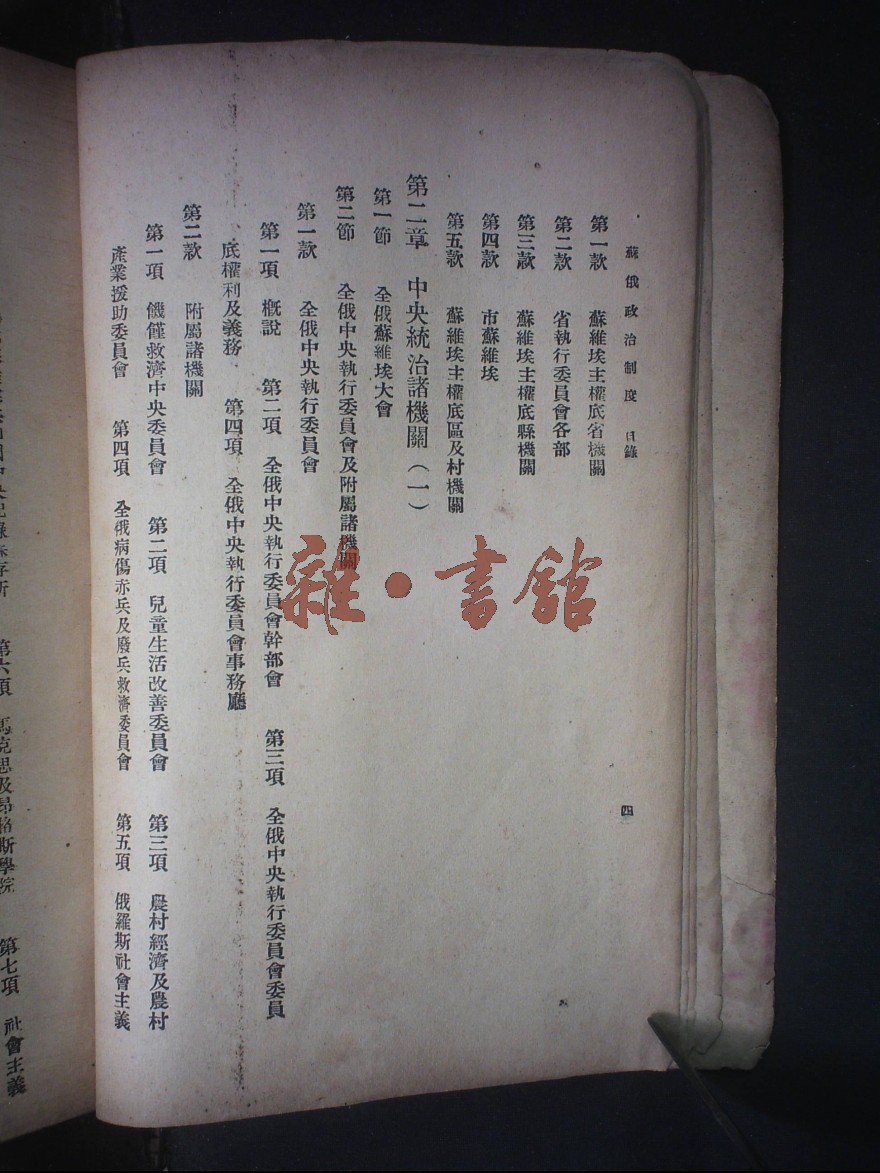 蘇俄政治制度 目錄
四
第一款 蘇維埃主權底省機關
第二款 省執行委員會各部
第三款 蘇維埃主權底縣機關
第四款 市蘇維埃
第五款 蘇維埃主權底區及村機關
第二章 中央統治諸機關(一)
第一節 全俄蘇維埃大會
第二節 全俄中央執行委員會及附屬諸機關
第一款 全俄中央執行委員會
第一項 概說 第二項 全俄中央執行委員會幹部會 第三項 全俄中央執行委員會委員
底權利及義務 第四項 全俄中央執行委員會事務廳
第二款 附屬諸機關
第一項 饑僅救濟中央委員會 第二項 兒童生活改善委員會 第三項 農村經濟及農村
產業援助委員會 第四項 全俄病傷赤兵及廢兵救濟委員會 第五項 俄羅斯社會主義
第六項 馬克思及昂格斯學院 第七項 社會主義
雜·書館